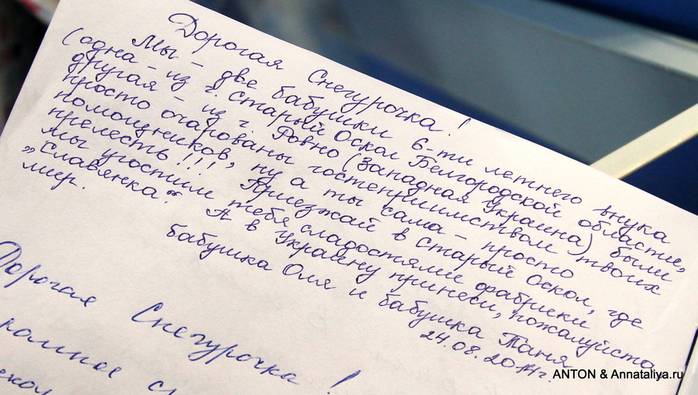 Дорогая Снегурочка!
Мы - две бабушки 6-ти летнего внука
(одна - из г. Старый Оскол Белгородской области,
другая - из г. Ровно (Западная Украина) были
просто очарованы гостеприимством твоих
помощников, ну а ты сама - просто
прелесть!!! Приезжай в Старый Оскол, где
мы угостим тебя сладостями фабрики
„Славянка“. А в Украину принеси, пожалуйста,
мир.
бабушка Оля и бабушка Таня
24.08.2014г.
Дорогая Снегурочка!
ANTON & Annataliya.ru